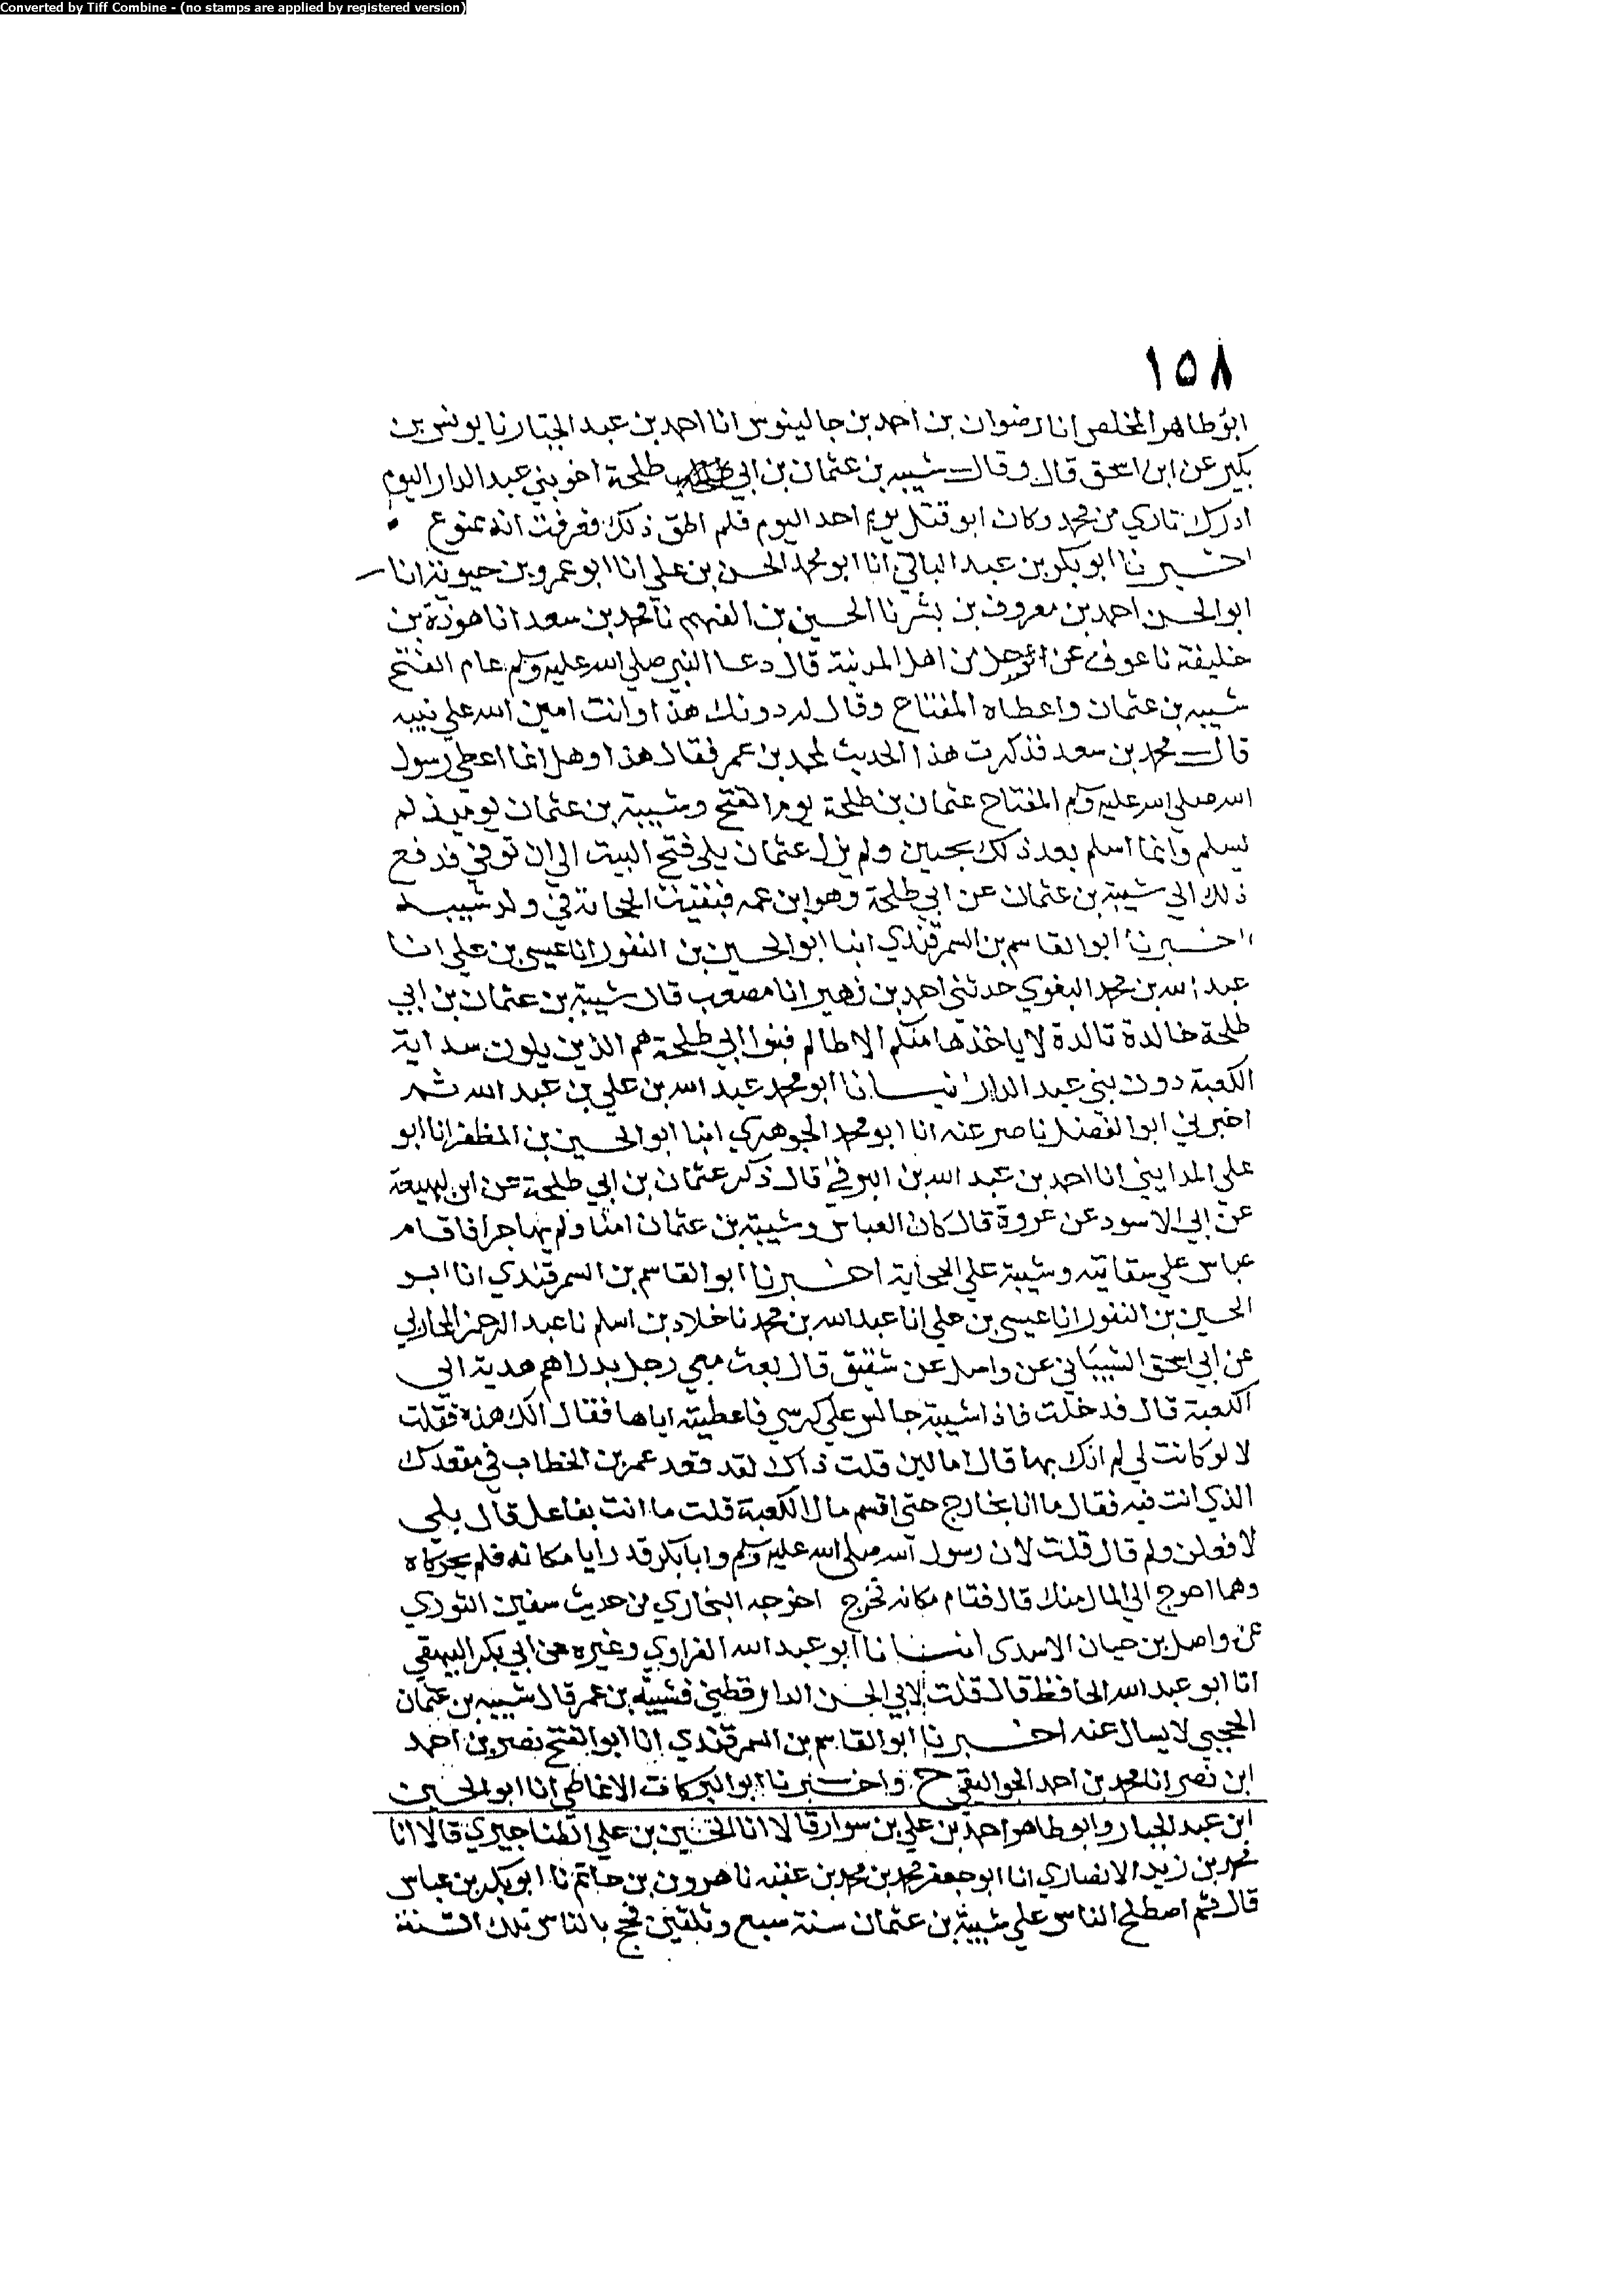 Converted by Tiff Combine - (no stamps are applied by registered version)
١٥٨
ابو طاهر المخلص انا رضوان بن احمد بن جالينوس انا احمد بن عبد الجبار نا يونس بن
بكير عن ابن اسحق قال وقال شيبه بن عثمان بن ابي طلحة اخو بني عبد الدار اليوم
ادرك ثاري من محمد وكان ابو قتل يوم احد اليوم فلم اطق ذلك فعرفت انه ممنوع
اخبرنا ابو بكر بن عبد الباقي انا ابو محمد الحسن بن علي انا ابو عمرو بن حيوية انا
ابو الحسن احمد بن معروف بن بشر نا الحسين بن الفهم نا محمد بن سعد انا هوذة بن
خليفة نا عوف عن رجل من اهل المدينة قال دعا النبي صلي الله عليه وسلم عام الفتح
شيبه بن عثمان واعطاه المفتاح وقال له دونك هذا وانت امين الله علي بيته
قال محمد بن سعد فذكرت هذا الحديث لمحمد بن عمر فقال هذا وهل انما اعطي رسول
الله صلي الله عليه وسلم المفتاح عثمان بن طلحة يوم الفتح وشيبة بن عثمان يوميذ لم
يسلم وانما اسلم بعد ذلك بحنين ولم يزل عثمان يلي فتح البيت الي ان توفي فدفع
ذلك الي شيبة بن عثمان عن ابي طلحة وهو ابن عمه فبقيت الحجابة في ولد شيبه
اخبرنا ابو القاسم بن السمرقندي انبا ابو الحسين بن النقور انا عيسي بن علي انا
عبد الله بن محمد البغوي حدثني احمد بن زهير انا مصعب قال شيبة بن عثمان بن ابي
طلحة خالدة تالدة لا ياخذها منكم الا ظالم فبنوا ابي طلحة هم الذين يلون سدانة
الكعبة دون بني عبد الدار انبانا ابو محمد عبد الله بن علي بن عبد الله ثم
اخبرني ابو الفضل ناصر عنه انا ابو محمد الجوهري انبا ابو الحسين بن المظفر انا ابو
علي المدايني انا احمد بن عبد الله بن البرقي قال ذكر عثمان بن ابي طلحة عن ابن لهيعة
عن ابي الاسود عن عروة قال كان العباس وشيبة بن عثمان امنا ولم يهاجرا فاقام
عباس علي سقايته وشيبة علي الحجابة اخبرنا ابو القاسم بن السمرقندي انا ابو
الحسين بن النقور انا عيسي بن علي انا عبد الله بن محمد نا خلاد بن اسلم نا عبد الرحمن المحاربي
عن ابي اسحق الشيباني عن واصل عن شقيق قال بعث معي رجل بدراهم هدية الي
الكعبة قال فدخلت فاذا شيبة جالس علي كرسي فاعطيته اياها فقال الك هذه فقلت
لا لو كانت لي لم اتك بها قال اما لين قلت ذاك لقد قعد عمر بن الخطاب في مقعدك
الذي انت فيه فقال ما انا بخارج حتي اقسم مال الكعبة قلت ما انت بفاعل قال بلي
لافعلن ولم قال قلت لان رسول الله صلي الله عليه وسلم وابا بكر قد رايا مكانه فلم يحركاه
وهما احوج الي المال منك قال فقام مكانه فخرج اخرجه البخاري من حديث سفين الثوري
عن واصل بن حيان الاسدي انبانا ابو عبد الله الفراوي وغيره عن ابي بكر البيهقي
انا ابو عبد الله الحافظ قال قلت لابي الحسن الدارقطني فشيبه بن عمر قال شيبه بن عثمان
الحجبي لا يسال عنه اخبرنا ابو القاسم بن السمرقندي انا ابو الفتح نصر بن احمد
ابن نصر انا محمد بن احمد الجواليقي ح واخبرنا ابو البركات الانماطي انا ابو الحسين
ابن عبد الجبار وابو طاهر احمد بن علي بن سوار قالا انا الحسين بن علي الطناجيري قالا انا
محمد بن زيد الانصاري انا ابو جعفر محمد بن محمد بن عقبه نا هرون بن حاتم نا ابو بكر بن عياش
قال ثم اصطلح الناس علي شيبة بن عثمان سنة سبع وثلثين فحج بالناس تلك السنة